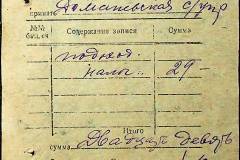 принято Доманьская с/упр
№№ бил. сч Содержание записи Сумма
подход.
налог. 29-
Итого
сумма Двадцать девять